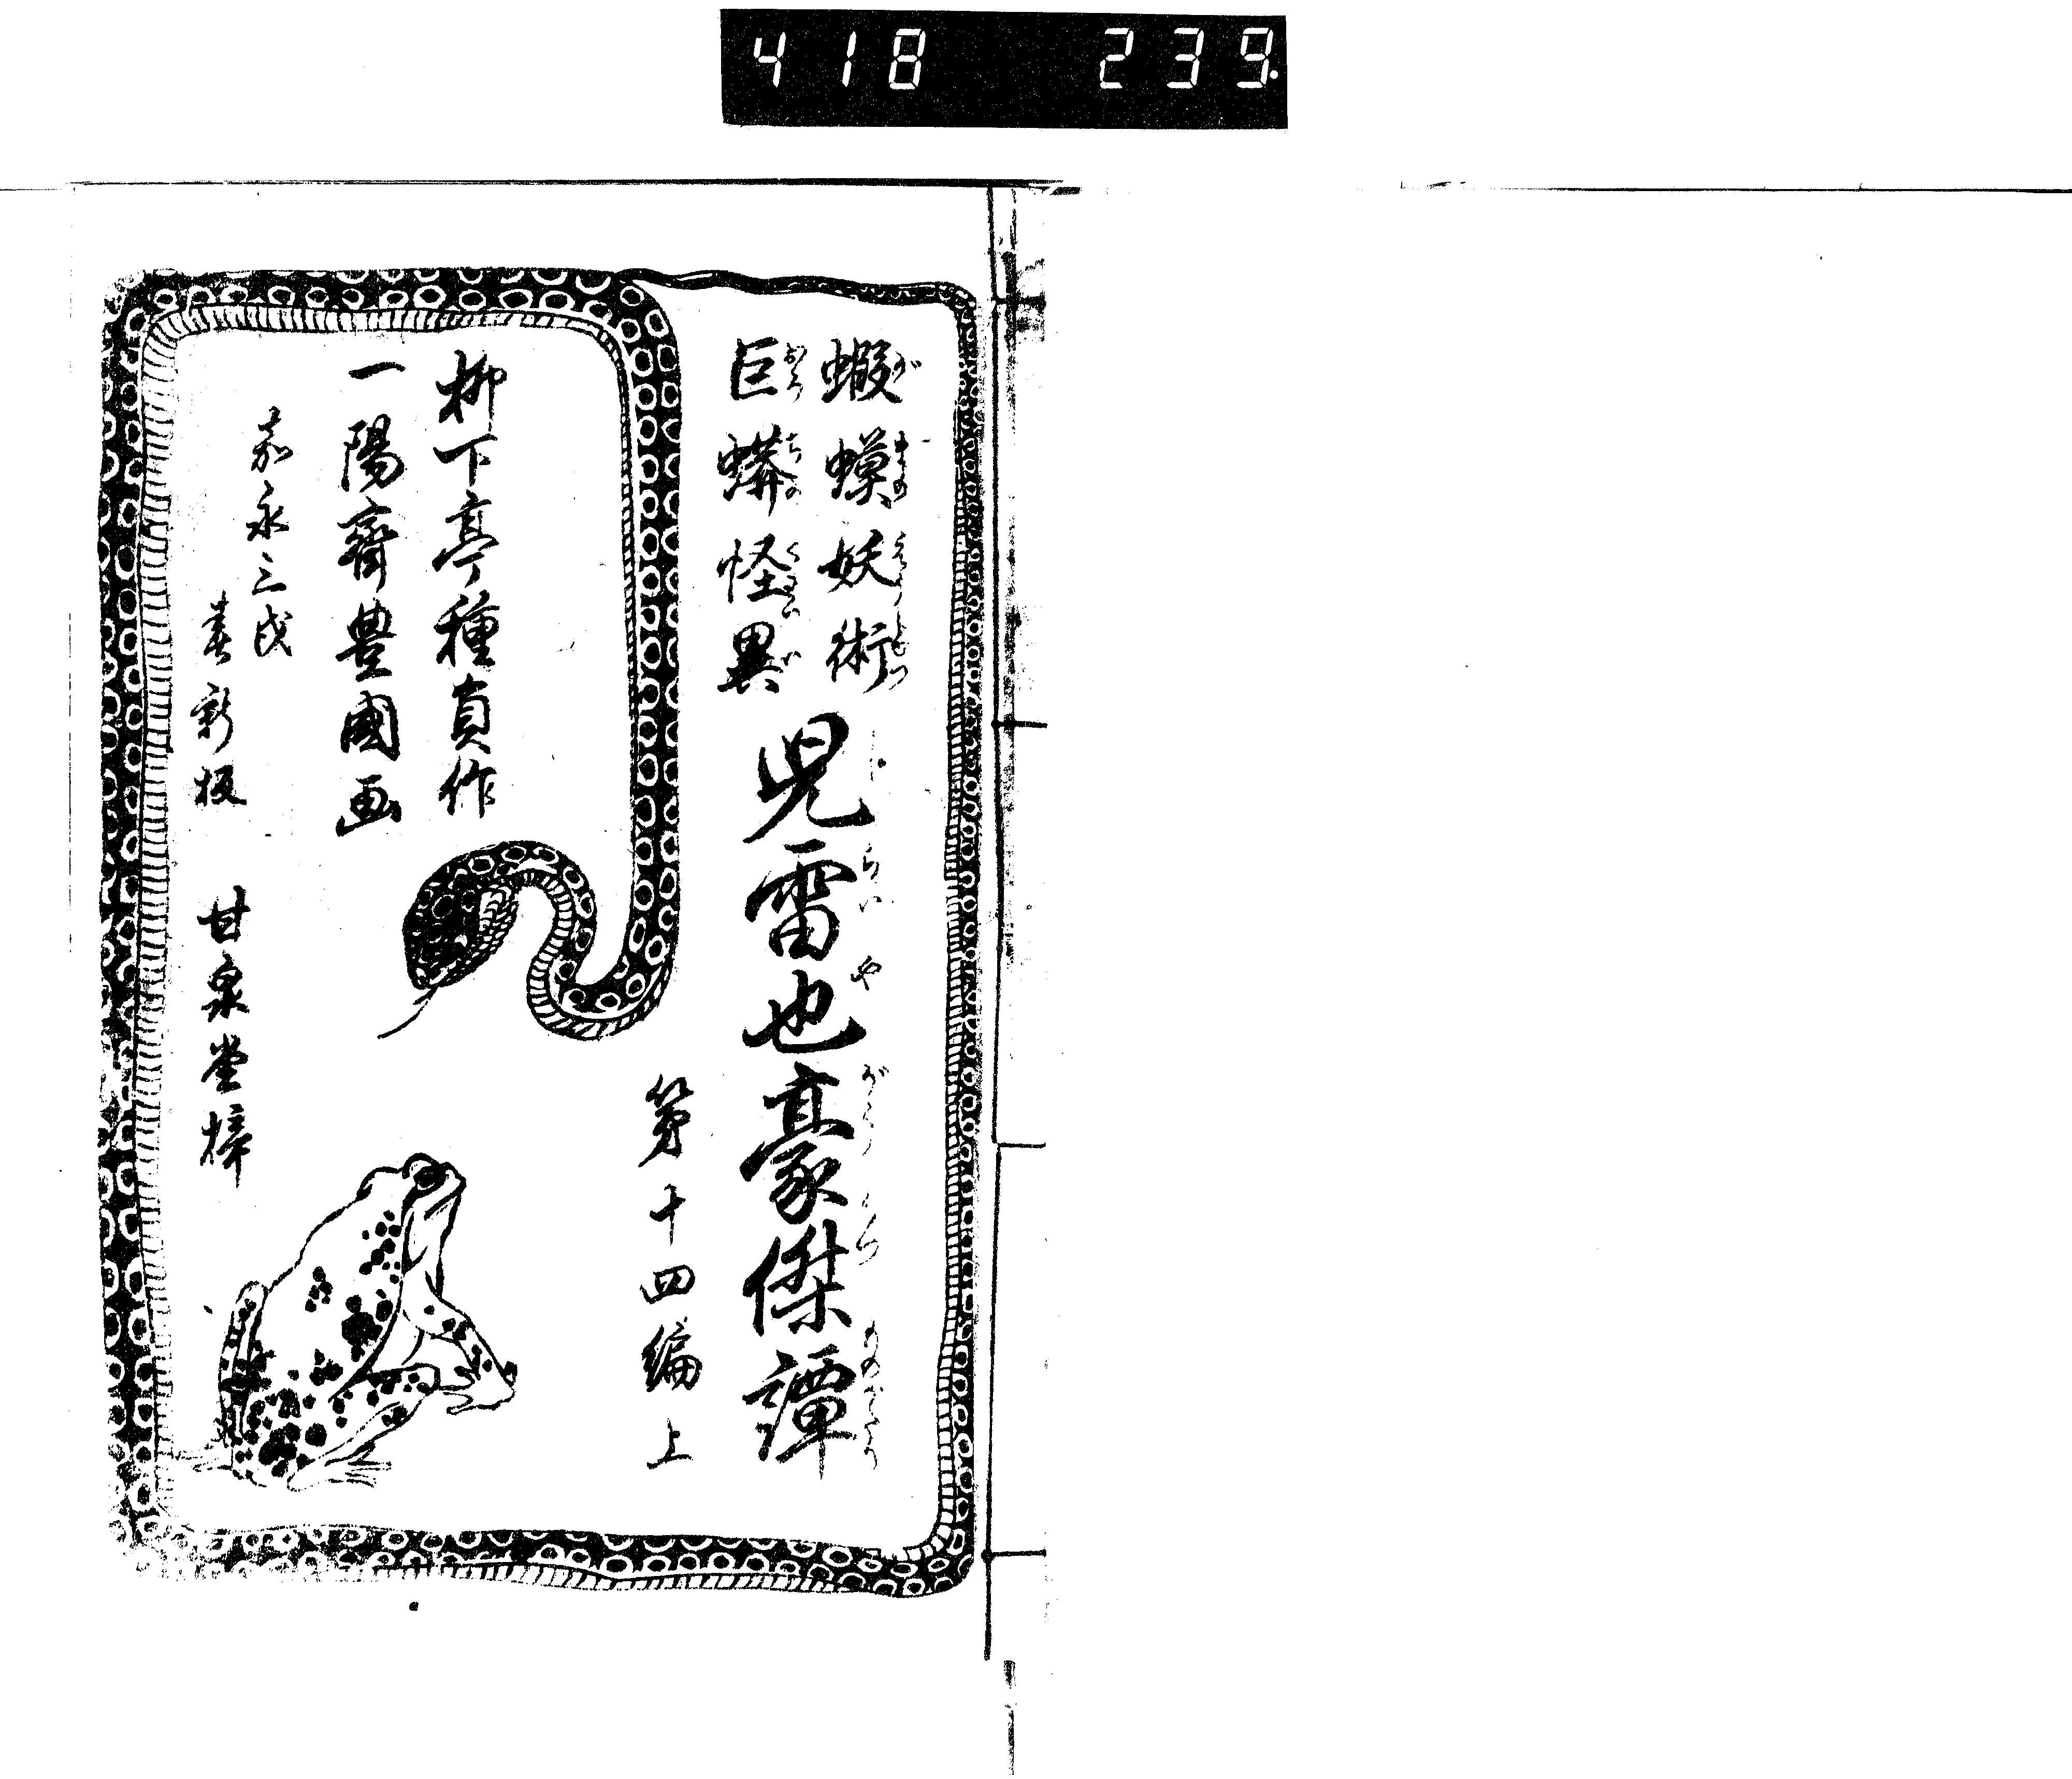 418 239.
蝦蟇妖術
巨蟒怪異
児雷也豪傑譚
第十四編上
柳下亭種員作
一陽齋豊國画
嘉永三戌
春新板
甘泉堂梓